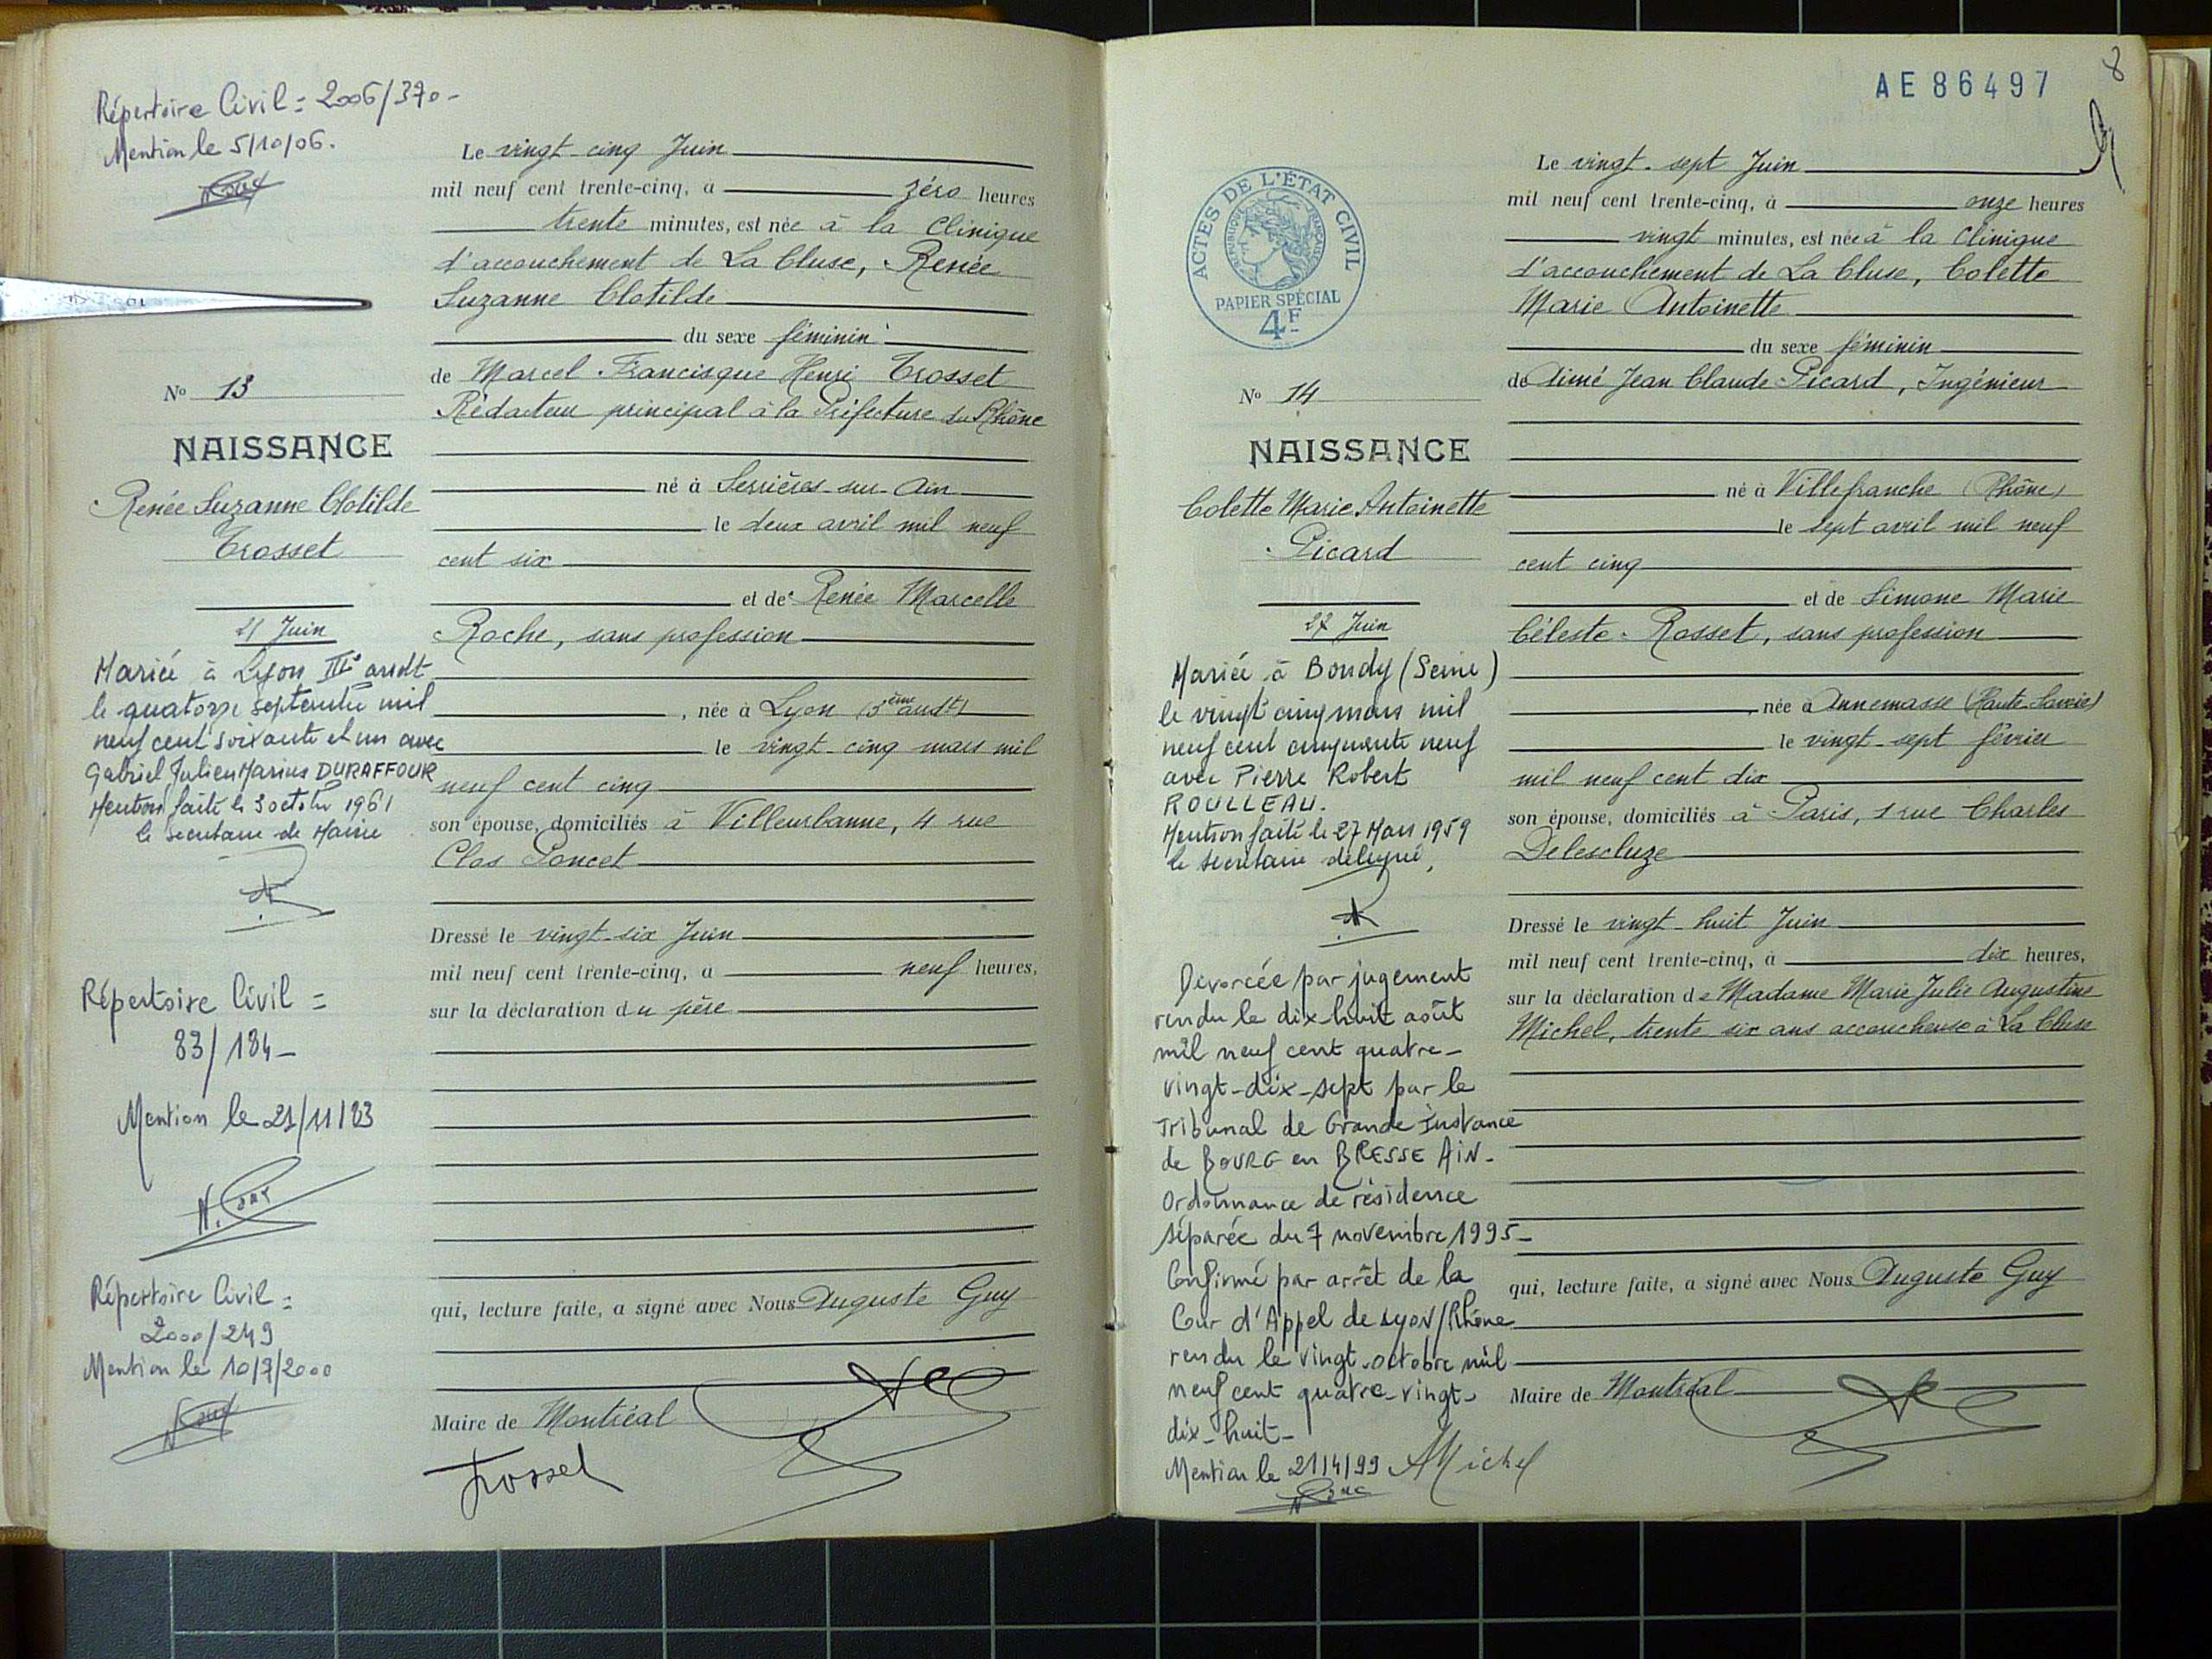 Répertoire Civil = 2006/370-
Mention le 5/10/06.
Le vingt-cinq Juin
mil neuf cent trente-cinq, à zéro heures
trente minutes, est née à la Clinique
d'accouchement de La Cluse, Renée
Suzanne Clotilde
du sexe féminin
de Marcel Francisque Henri Trosset
Rédacteur principal à la Préfecture du Rhône
né à Serrières-sur-Ain
le deux avril mil neuf
cent six
et de Renée Marcelle
Roche, sans profession
, née à Lyon (3ème arrdt)
le vingt-cinq mars mil
neuf cent cinq
son épouse, domiciliés à Villeurbanne, 4 rue
Clos Poncet
Dressé le vingt-six Juin
mil neuf cent trente-cinq, à neuf heures,
sur la déclaration du père
qui, lecture faite, a signé avec Nous Auguste Guy
Maire de Montréal
Trosset
No 13
NAISSANCE
Renée Suzanne Clotilde
Trosset
Juin
Mariée à Lyon III° arrdt
le quatorze septembre mil
neuf cent soixante et un avec
Gabriel Julien Marius DURAFFOUR
Mention faite le 3 octobre 1961
le secrétaire de Mairie
Répertoire Civil =
83/184-
Mention le 21/11/83
Répertoire Civil =
2000/249
Mention le 10/7/2000
AE 86497
8
ACTES DE L'ÉTAT CIVIL
RÉPUBLIQUE FRANÇAISE
PAPIER SPÉCIAL
4F
Le vingt-sept Juin
mil neuf cent trente-cinq, à onze heures
vingt minutes, est née à la Clinique
d'accouchement de La Cluse, Colette
Marie Antoinette
du sexe féminin
de Aimé Jean Claude Picard, Ingénieur
né à Villefranche (Rhône)
le sept avril mil neuf
cent cinq
et de Simone Marie
Céleste Rosset, sans profession
née à Annemasse (Haute-Savoie)
le vingt-sept février
mil neuf cent dix
son épouse, domiciliés à Paris, 1 rue Charles
Delescluze
Dressé le vingt-huit Juin
mil neuf cent trente-cinq, à dix heures,
sur la déclaration de Madame Marie Julie Augustine
Michel, trente six ans accoucheuse à La Cluse
qui, lecture faite, a signé avec Nous Auguste Guy
Maire de Montréal
No 14
NAISSANCE
Colette Marie Antoinette
Picard
27 Juin
Mariée à Bondy (Seine)
le vingt cinq mars mil
neuf cent cinquante neuf
avec Pierre Robert
ROULLEAU.
Mention faite le 27 Mars 1959
le secrétaire délégué,
Divorcée par jugement
rendu le dix-huit août
mil neuf cent quatre-
vingt-dix-sept par le
Tribunal de Grande Instance
de BOURG en BRESSE AiN-
Ordonnance de résidence
séparée du 7 novembre 1995-
Confirmé par arrêt de la
Cour d'Appel de Lyon/Rhône
rendu le vingt octobre mil
neuf cent quatre-vingt-
dix-huit-
Mention le 21/4/99
AMichel